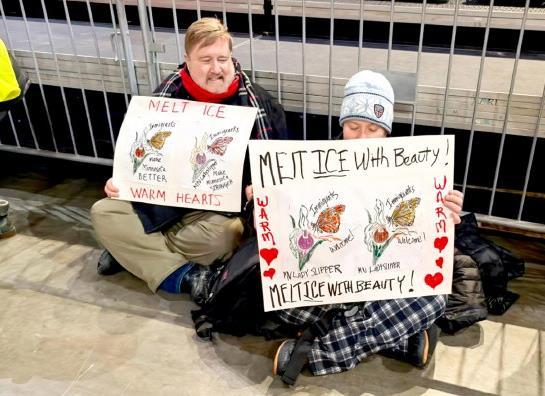 MELT ICE
Immigrants
Immigrants
make
Minnesota
BETTER
MN LADYSLIPPER
Make
Minnesota
WARM HEARTS
MELT ICE With Beauty!
WARM
Immigrants
Immigrants
Welcome!
Welcome!
MN LADY SLIPPER
MN LADYSLIPPER
WARM
MELT ICE WITH BEAUTY!